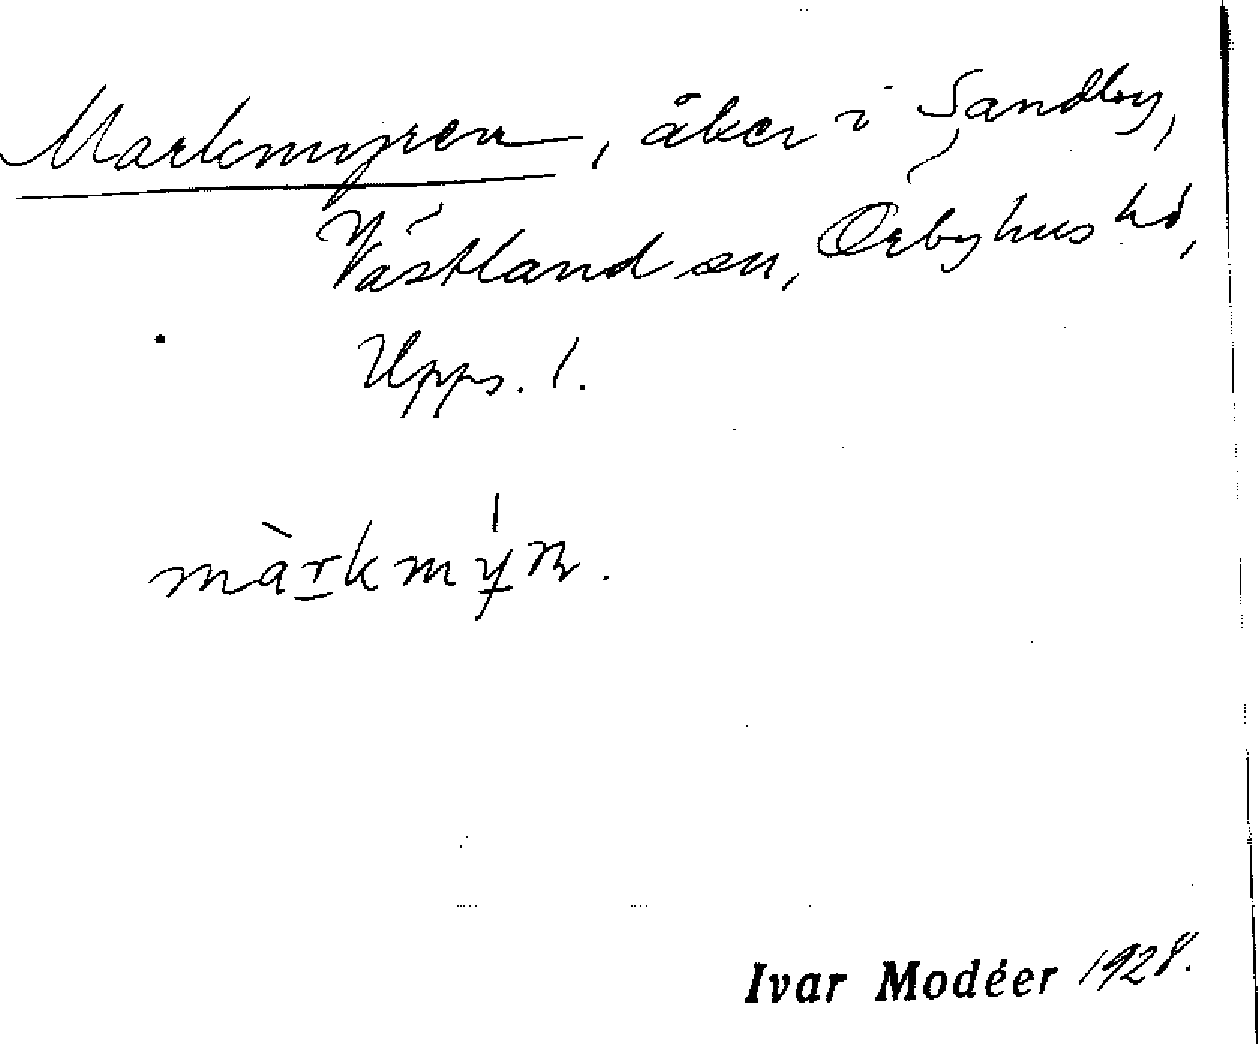 Markmyren, åker i Sandby,
Västland sn, Örbyhus hd,
Upps. l.
màrkmy̍n.
Ivar Modéer 1928.